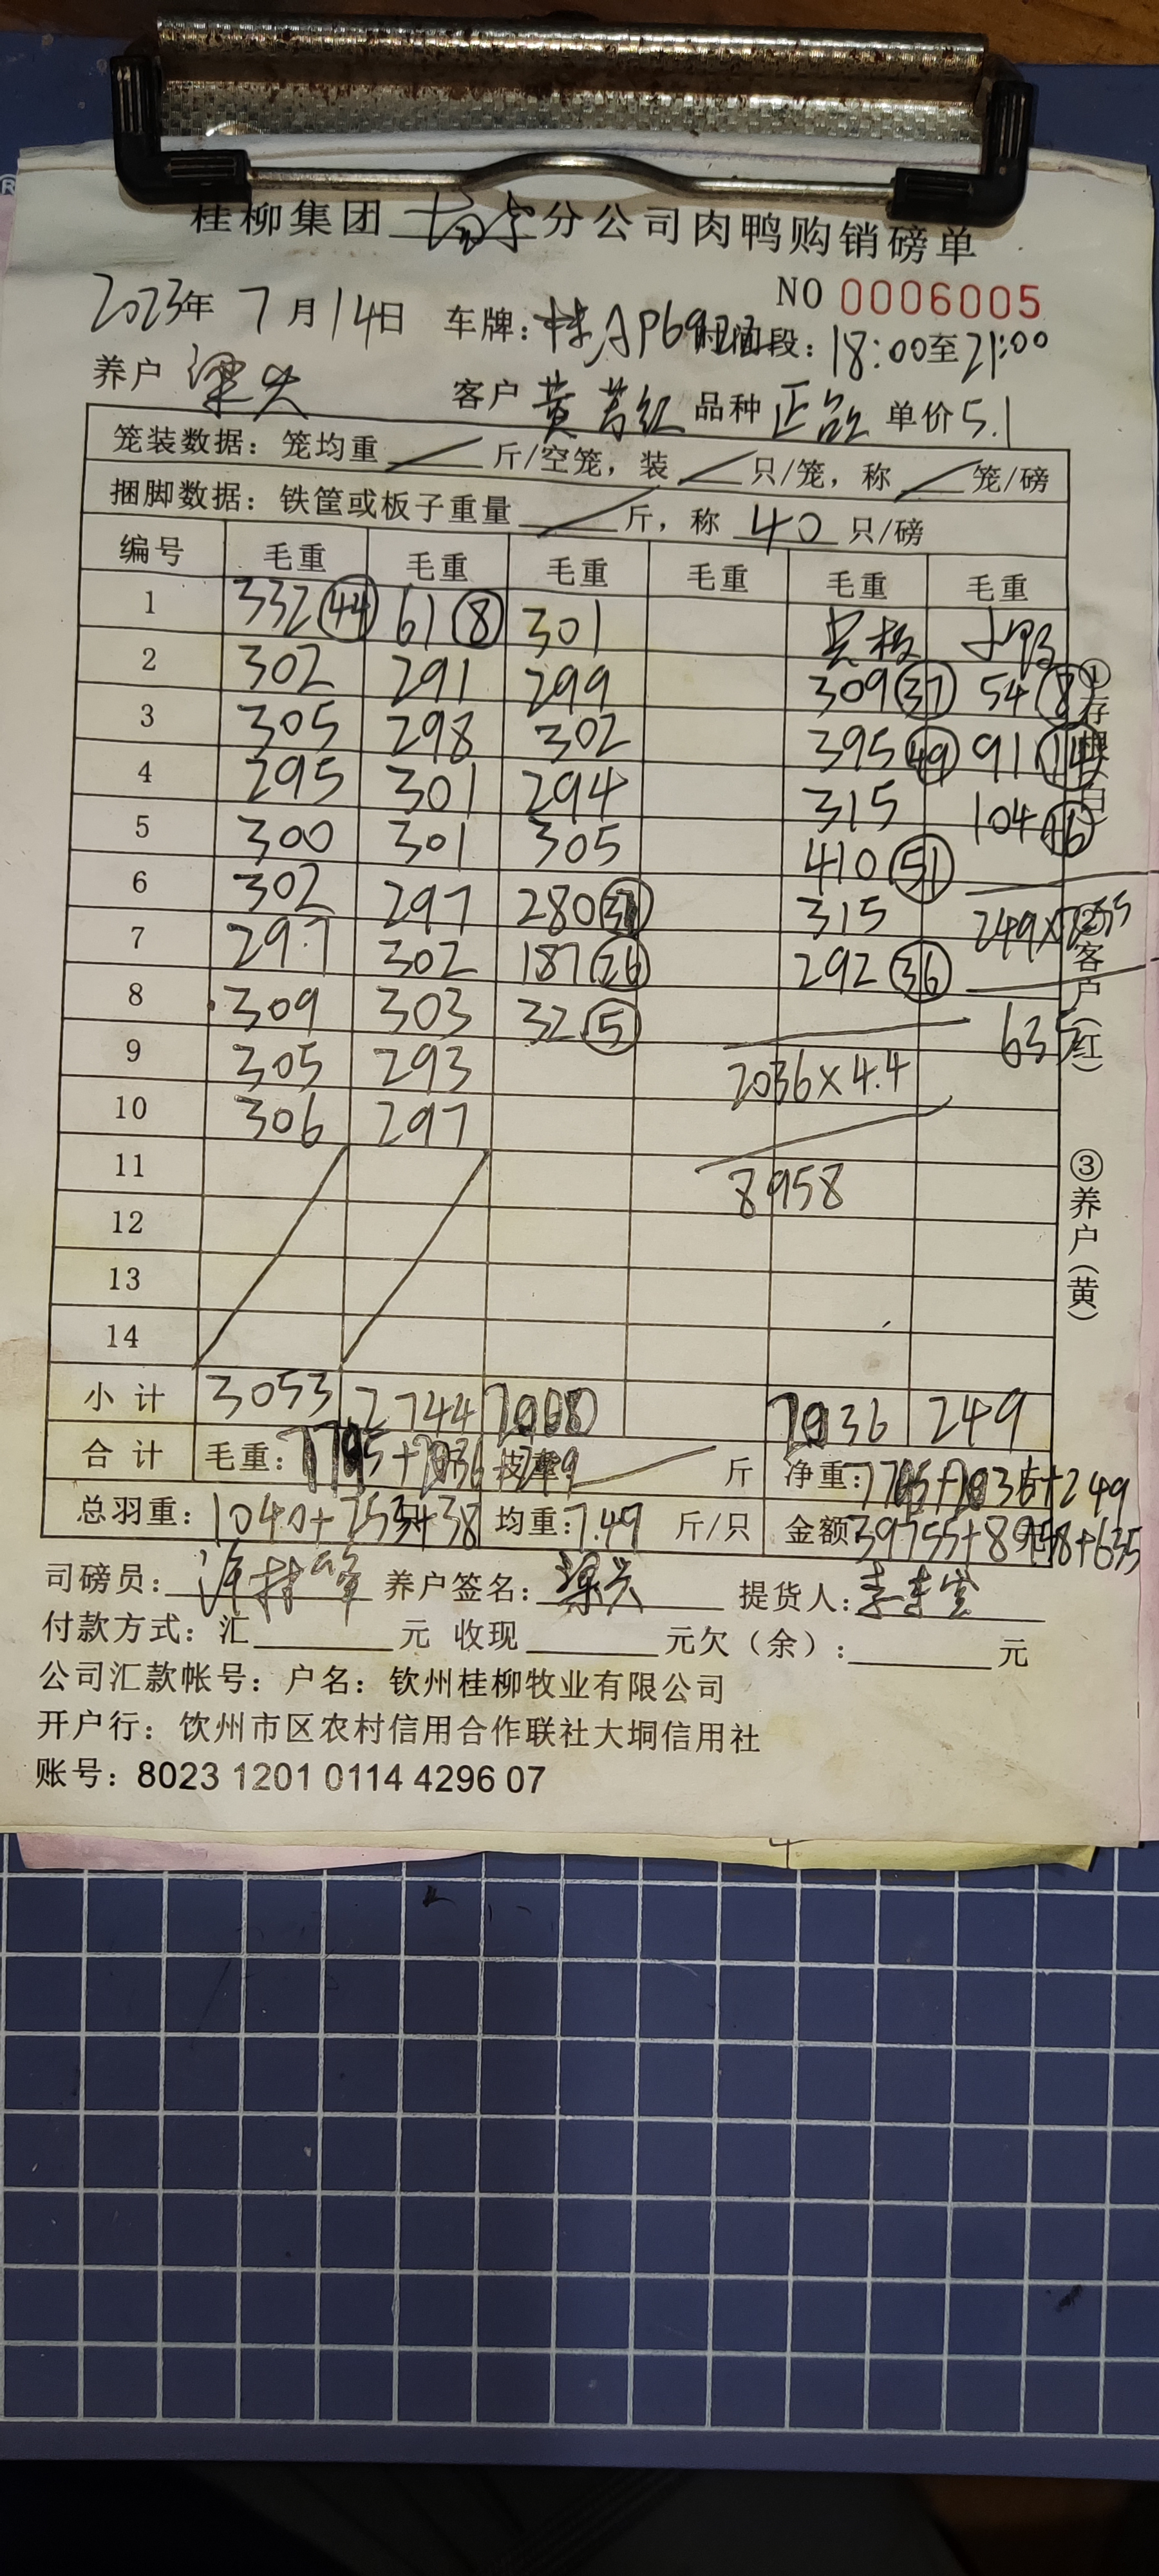 桂柳集团 分公司肉鸭购销磅单
NO 0006005
2023年 7月14日 车牌: 时间段: 18:00至21:00
养户 梁 客户 黄 红 品种 正 单价 5.1
笼装数据: 笼均重 斤/空笼, 装 只/笼, 称 笼/磅
捆脚数据: 铁筐或板子重量 斤, 称 40 只/磅
编号 毛重 毛重 毛重 毛重 毛重 毛重
1 332 44 61 8 301 小鸭
2 302 291 299 309 37 54 8
3 305 298 302 395 49 91 14
4 295 301 294 315 104 16
5 300 301 305 410 51
6 302 297 280 315 249×2.55
7 297 302 187 26 292 36
8 309 303 32 5 635
9 305 293 2036×4.4
10 306 297
11 8958
12
13
14
小计 3053 2744 2036 249
合计 毛重: 皮重: 斤 净重: +2036+249
总羽重: 1040+253+38 均重: 7.49 斤/只 金额 39755+8958+635
司磅员: 养户签名: 梁 提货人: 李
付款方式: 汇 元 收现 元欠(余): 元
公司汇款帐号: 户名: 钦州桂柳牧业有限公司
开户行: 饮州市区农村信用合作联社大垌信用社
账号: 8023 1201 0114 4296 07
①存根(白)
②客户(红)
③养户(黄)